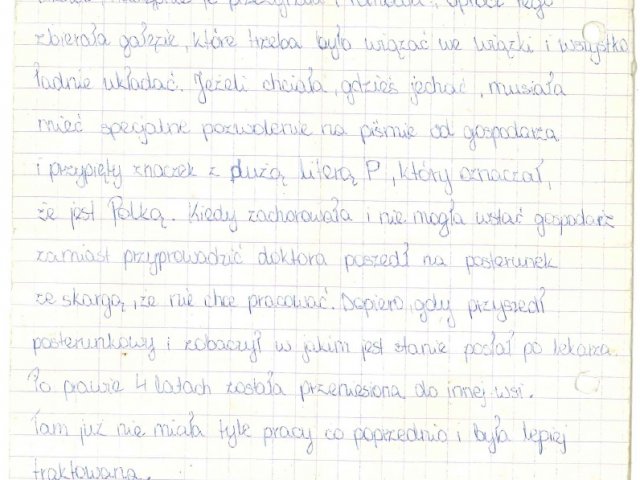 zbierała gałęzie, które trzeba było wiązać we wiązki i wszystko
ładnie układać. Jeżeli chciała, gdzieś jechać, musiała
mieć specjalne pozwolenie na piśmie od gospodarza
i przypięty znaczek z dużą literą P, który oznaczał,
że jest Polką. Kiedy zachorowała i nie mogła wstać gospodarz
zamiast przyprowadzić doktora poszedł na posterunek
ze skargą, że nie chce pracować. Dopiero, gdy przyszedł
posterunkowy i zobaczył w jakim jest stanie posłał po lekarza.
Po prawie 4 latach została przeniesiona do innej wsi.
Tam już nie miała tyle pracy co poprzednio i była lepiej
traktowana.